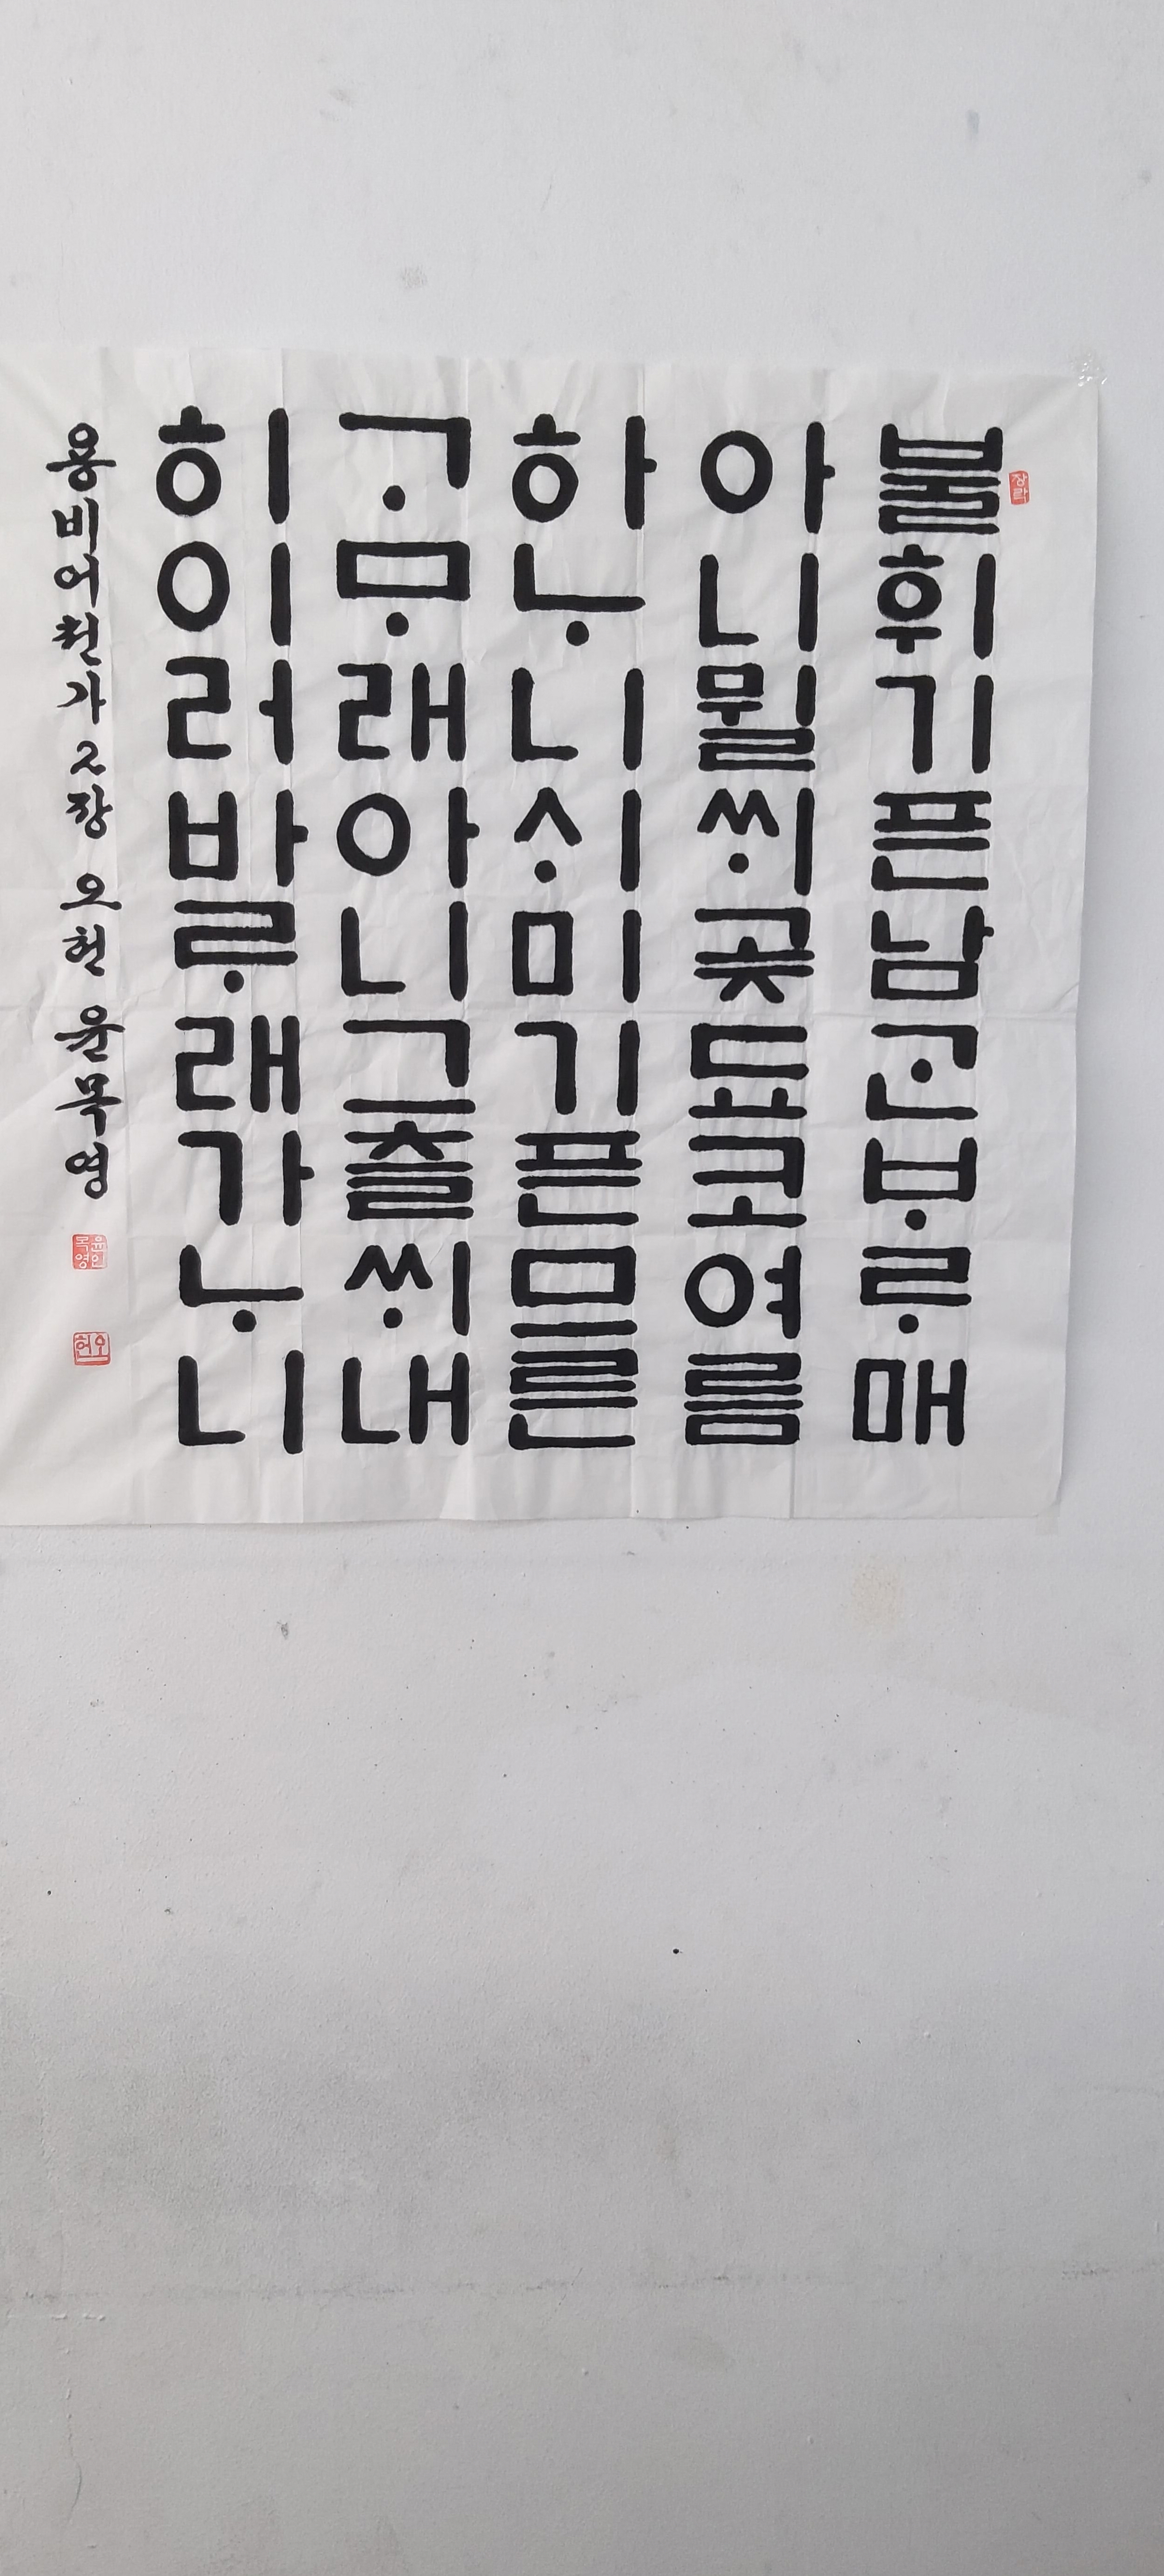 장락
불휘기픈남ᄀᆞᆫᄇᆞᄅᆞ매
아니뮐ᄊᆡ곶됴코여름
하ᄂᆞ니ᄉᆡ미기픈므른
ᄀᆞᄆᆞ래아니그츨ᄊᆡ내
히이러바ᄅᆞ래가ᄂᆞ니
용비어천가 2장 오헌 윤목영
오헌